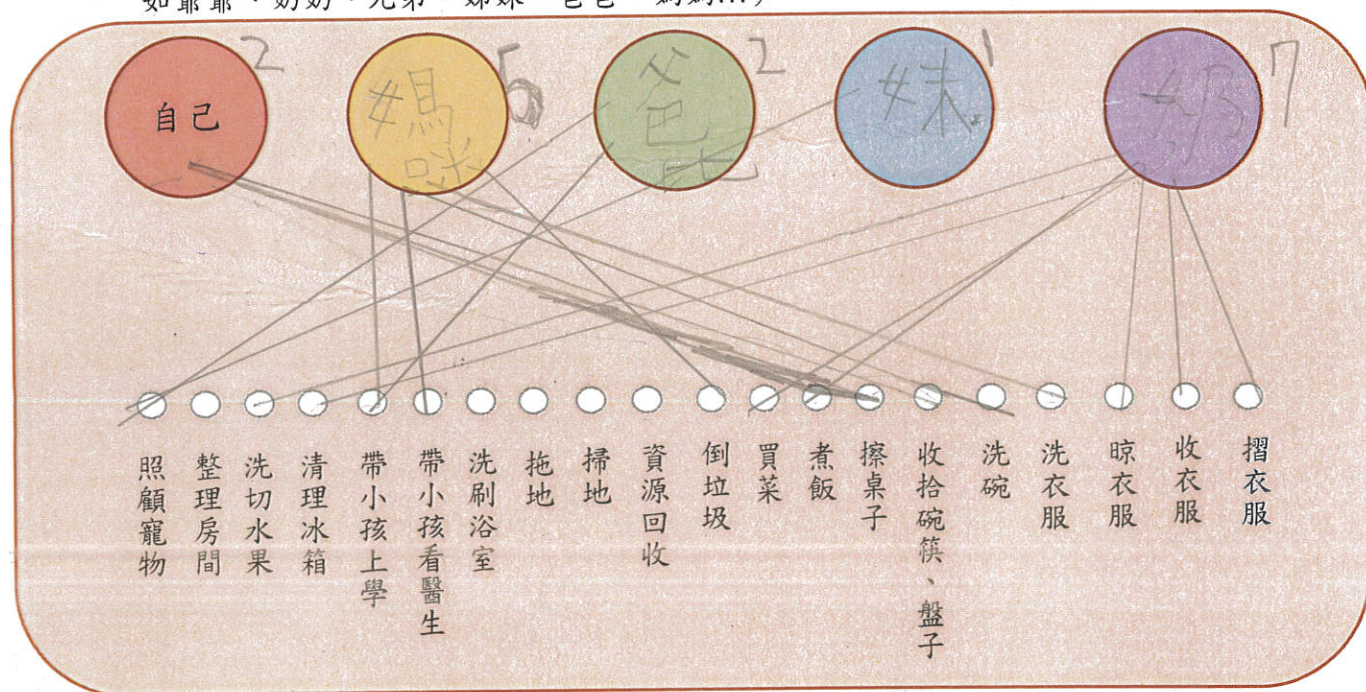 如爺爺、奶奶、兄弟、姊妹、爸爸、媽媽...)
自己 2
媽咪 5
爸比 2
妹 1
奶 7
照顧寵物
整理房間
洗切水果
清理冰箱
帶小孩上學
帶小孩看醫生
洗刷浴室
拖地
掃地
資源回收
倒垃圾
買菜
煮飯
擦桌子
收拾碗筷、盤子
洗碗
洗衣服
晾衣服
收衣服
摺衣服